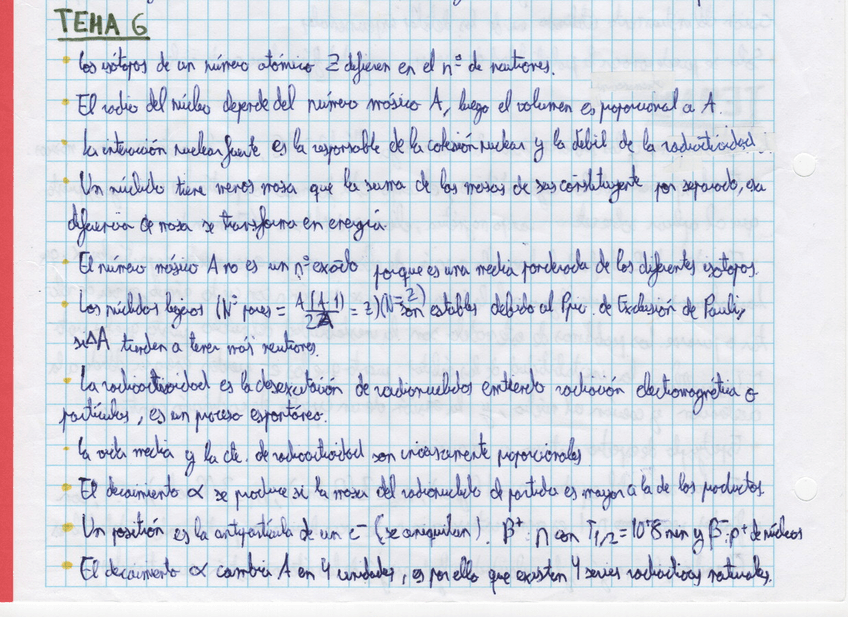 TEMA 6
Los isótopos de un número atómico Z difieren en el nº de neutrones.
El radio del núcleo depende del número másico A, luego el volumen es proporcional a A.
La interacción nuclear fuerte es la responsable de la cohesión nuclear y la débil de la radioactividad.
Un núclido tiene menos masa que la suma de las masas de sus constituyente por separado, esa
diferencia de masa se transforma en energía.
El número másico A no es un nº exacto porque es una media ponderada de los diferentes isótopos.
Los núclidos ligeros (Nº pares = A(A-1)/2 = Z)(N=Z) son estables debido al Ppio. de Exclusión de Pauli,
si ΔA tienden a tener más neutrones.
La radioactividad es la desexcitación de radionucleidos emitiendo radiación electromagnética o
partículas, es un proceso espontáneo.
La vida media y la cte. de radioactividad son inversamente proporcionales
El decaimiento α se produce si la masa del radionucleido de partida es mayor a la de los productos.
Un positrón es la antipartícula de un e⁻ (se aniquilan). β⁺: n con T1/2 = 10'8 min y β⁻: p⁺ de núcleos
El decaimiento α cambia A en 4 unidades, es por ello que existen 4 series radiactivas naturales.